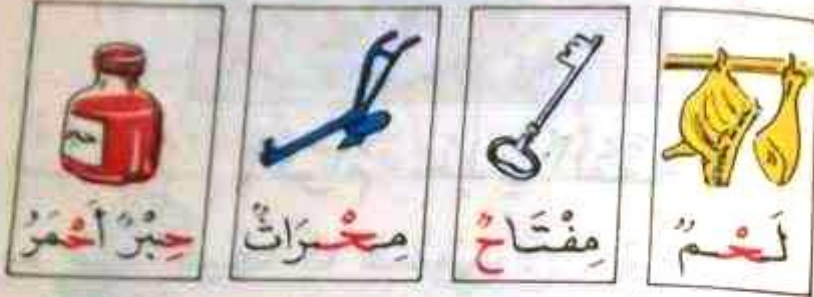 لَحْمٌ
مِفْتَاحٌ
مِحْرَاثٌ
حِبْرٌ اَحْمَرُ
حبر